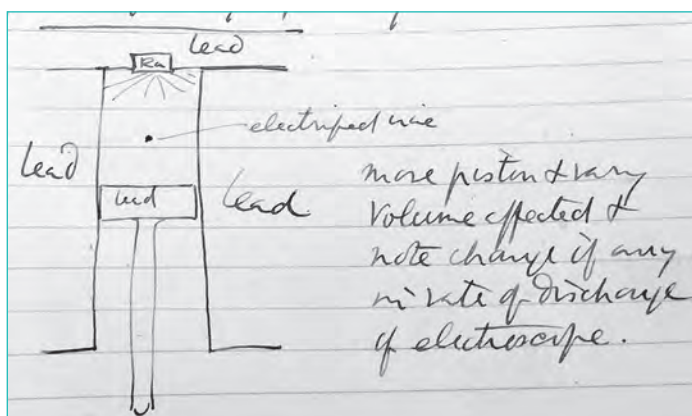 Lead
Ra
electrified wire
Lead
lead
Lead
move piston & vary
volume affected &
note change if any
in rate of discharge
of electroscope.